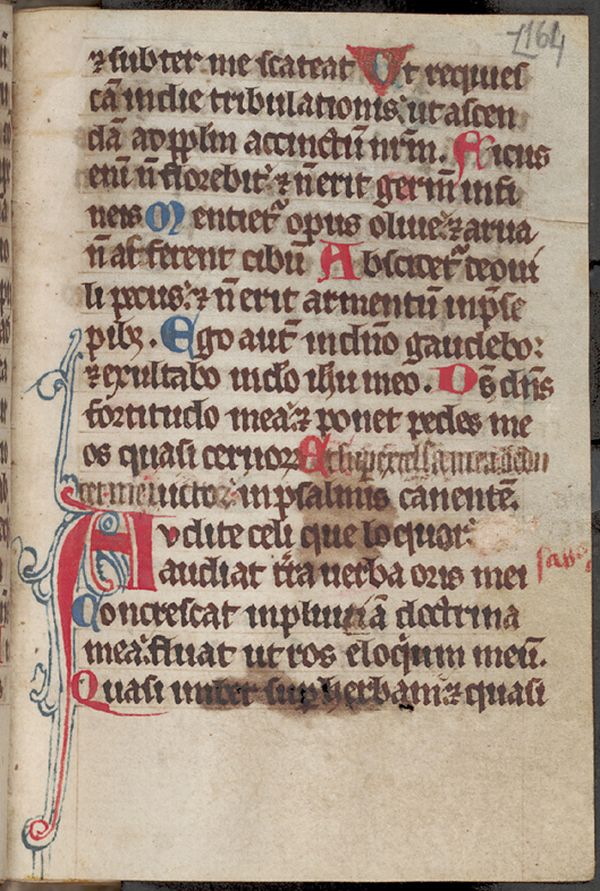 1164
⁊ subter me scateat Ut requies
cā in die tribulationis: ut ascen
dā ad pplm̄ accinctū nr̄m. Ficus
enī n̄ florebit: ⁊ n̄ erit germē in vi
neis Mentiet᷑ opus olive: ⁊ arva
n̄ afferent cibū Abscidet᷑ de ovi
li pecus: ⁊ n̄ erit armentū in p̄se
pibꝫ. Ego autē in dn̄o gaudebo:
⁊ exultabo in do ihu meo. Ds̄ dn̄s
fortitudo mea: ⁊ ponet pedes me
os quasi cervoꝝ Et super excelsa mea dedu
cet me victor in psalmis canentē.
Audite celi que loquor:
audiat tr̄ra verba oris mei
Concrescat in pluviā doctrina
mea: fluat ut ros eloq̇um meū.
Quasi imber sup herbam: ⁊ quasi